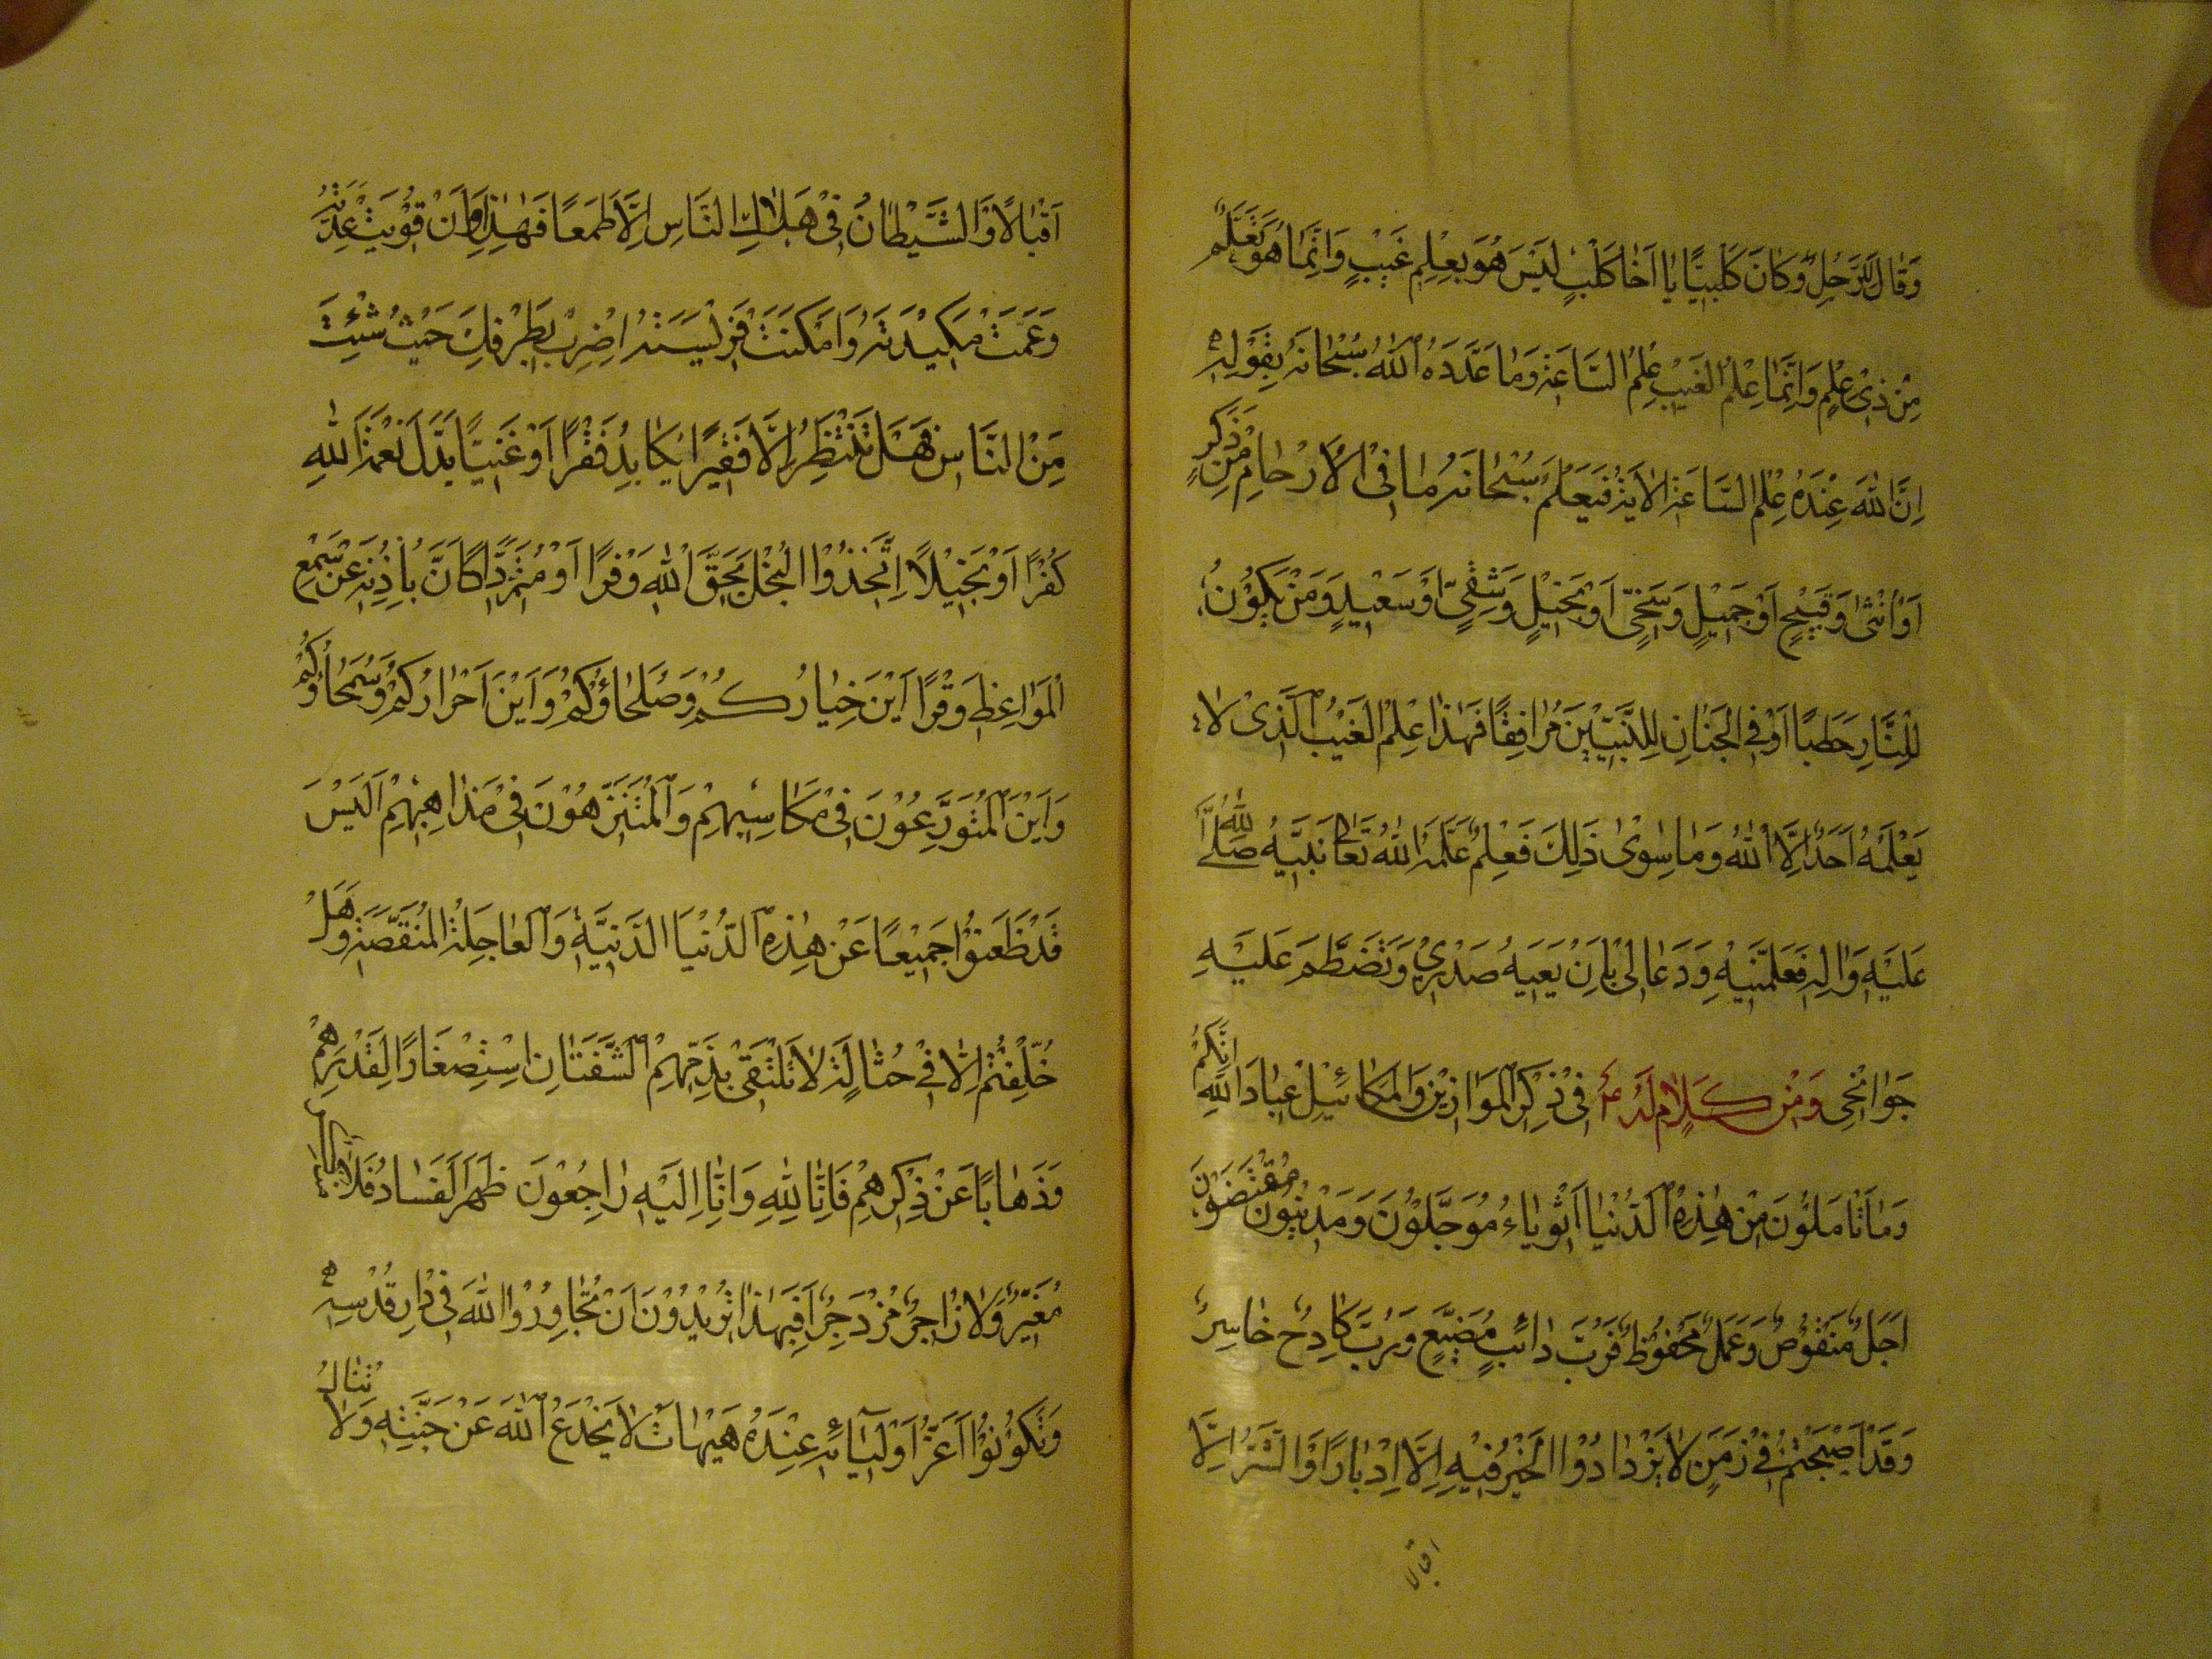 وَقَالَ لِلرَّجُلِ وَكَانَ كَلْبِيًّا يَا اَخَا كَلْبٍ لَيْسَ هُوَ بِعِلْمِ غَيْبٍ وَاِنَّمَا هُوَ تَعَلُّمٌ
مِنْ ذِىْ عِلْمٍ وَاِنَّمَا عِلْمُ الْغَيْبِ عِلْمُ السَّاعَةِ وَمَا عَدَّدَهُ اللهُ سُبْحَانَهُ بِقَوْلِهِ
اِنَّ اللهَ عِنْدَهُ عِلْمُ السَّاعَةِ الْاٰيَة فَيَعْلَمُ سُبْحَانَهُ مَا فِى الْاَرْحَامِ مِنْ ذَكَرٍ
اَوْ اُنْثٰى وَقَبِيْحٍ اَوْ جَمِيْلٍ وَسَخِىٍّ اَوْ بَخِيْلٍ وَشَقِىٍّ اَوْ سَعِيْدٍ وَمَنْ يَكُوْنُ
لِلنَّارِ حَطَبًا اَوْ فِى الْجِنَانِ لِلنَّبِيِّيْنَ مُرَافِقًا فَهٰذَا عِلْمُ الْغَيْبِ الَّذِىْ لَا
يَعْلَمُهُ اَحَدٌ اِلَّا اللهُ وَمَا سِوٰى ذٰلِكَ فَعِلْمٌ عَلَّمَهُ اللهُ تَعَالٰى نَبِيَّهُ صَلَّى اللهُ
عَلَيْهِ وَاٰلِهِ فَعَلَّمَنِيْهِ وَدَعَا لِىْ بِاَنْ يَعِيَهُ صَدْرِىْ وَتَضْطَمَّ عَلَيْهِ
جَوَانِحِى وَمِنْ كَلَامٍ لَهُ ع فِىْ ذِكْرِ الْمَوَازِيْنِ وَالْمَكَائِيْلِ عِبَادَ اللهِ اِنَّكُمْ
وَمَا تَاْمَلُوْنَ مِنْ هٰذِهِ الدُّنْيَا اَثْوِيَاءُ مُؤَجَّلُوْنَ وَمَدِيْنُوْنَ مُقْتَضَوْنَ
اَجَلٌ مَنْقُوْصٌ وَعَمَلٌ مَحْفُوْظٌ فَرُبَّ دَائِبٍ مُضَيَّعٍ وَرُبَّ كَادِحٍ خَاسِرٌ
وَقَدْ اَصْبَحْتُمْ فِىْ زَمَنٍ لَا يَزْدَادُوْا الْخَيْرُ فِيْهِ اِلَّا اِدْبَارًا وَالشَّرُّ اِلَّا
اقبالا
اِقْبَالًا وَالشَّيْطَانُ فِىْ هَلَاكِ النَّاسِ اِلَّا طَمَعًا فَهٰذَا اَوَانٌ قَوِيَتْ عُدَّتُهُ
وَعَمَّتْ مَكِيْدَتُهُ وَاَمْكَنَتْ فَرِيْسَتُهُ اِضْرِبْ بِطَرْفِكَ حَيْثُ شِئْتَ
مِنَ النَّاسِ هَلْ تَنْتَظِرُ اِلَّا فَقِيْرًا يُكَابِدُ فَقْرًا اَوْ غَنِيًّا بَدَّلَ نِعْمَةَ اللهِ
كُفْرًا اَوْ بَخِيْلًا اِتَّخَذُوْا الْبُخْلَ بِحَقِّ اللهِ وَفْرًا اَوْ مُتَمَرِّدًا كَاَنَّ بِاُذُنِهِ عَنْ سَمْعِ
الْمَوَاعِظِ وَقْرًا اَيْنَ خِيَارُكُمْ وَصُلَحَاؤُكُمْ وَاَيْنَ اَحْرَارُكُمْ وَسُمَحَاؤُكُمْ
وَاَيْنَ الْمُتَوَرِّعُوْنَ فِىْ مَكَاسِبِهِمْ وَالْمُتَنَزِّهُوْنَ فِىْ مَذَاهِبِهِمْ اَلَيْسَ
قَدْ ظَعَنُوْا جَمِيْعًا عَنْ هٰذِهِ الدُّنْيَا الدَّنِيَّةِ وَالْعَاجِلَةِ الْمُنَغَّصَةِ وَهَلْ
خُلِّفْتُمْ اِلَّا فِىْ حُثَالَةٍ لَا تَلْتَقِىْ بِذَمِّهِمُ الشَّفَتَانِ اِسْتِصْغَارًا لِقَدْرِهِمْ
وَذَهَابًا عَنْ ذِكْرِهِمْ فَاِنَّا لِلهِ وَاِنَّا اِلَيْهِ رَاجِعُوْنَ ظَهَرَ الْفَسَادُ فَلَا
مُغَيِّرٌ وَلَا زَاجِرٌ مُزْدَجِرٌ اَفَبِهٰذَا تُرِيْدُوْنَ اَنْ تُجَاوِرُوْا اللهَ فِىْ دَارِ قُدْسِهِ
وَتَكُوْنُوْا اَعَزَّ اَوْلِيَائِهِ عِنْدَهُ هَيْهَاتَ لَا يُخْدَعُ اللهَ عَنْ جَنَّتِهِ وَلَا تُنَالُ